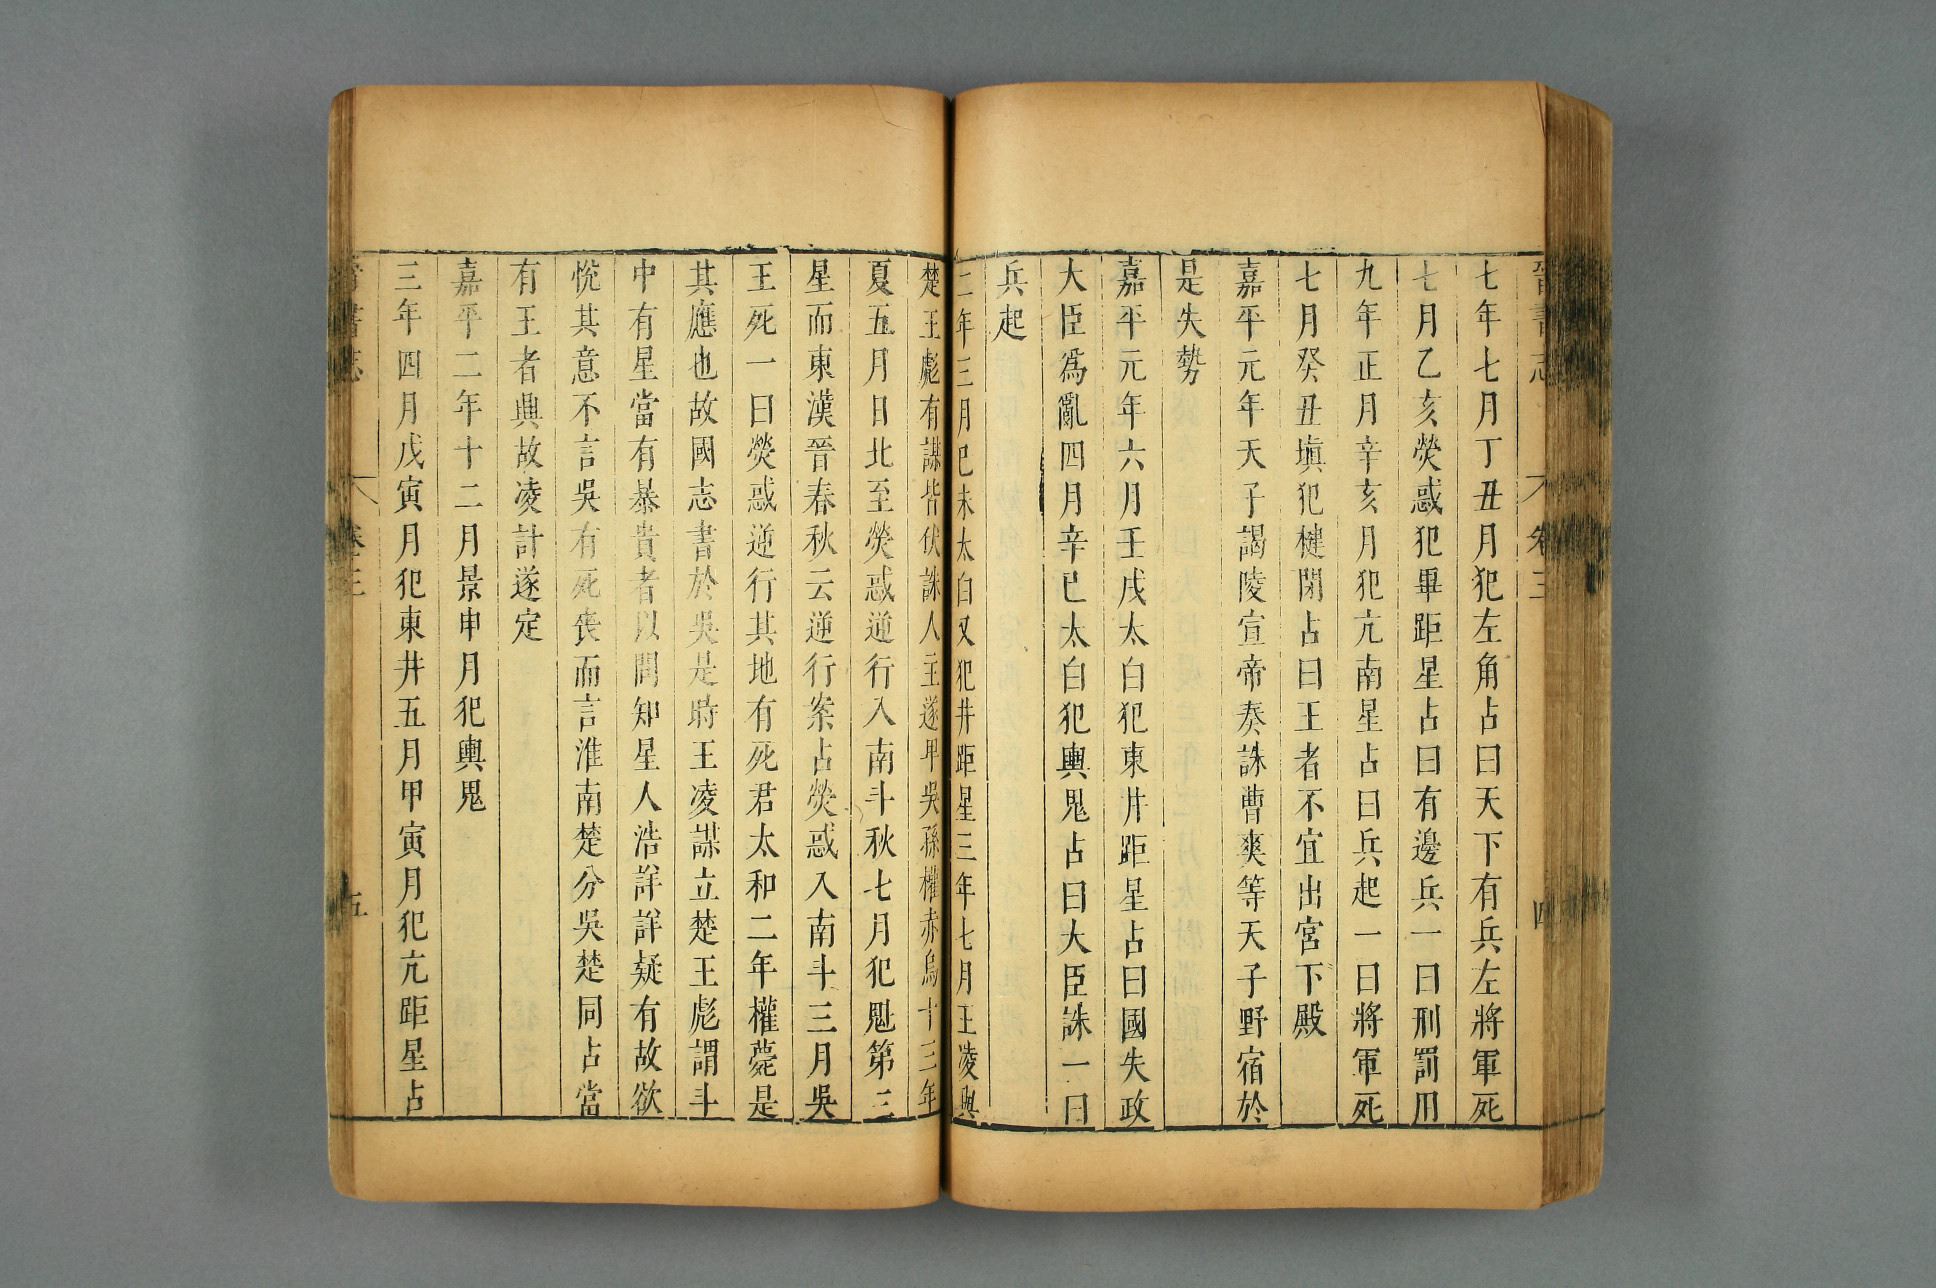 晉書志 卷三 四
七年七月丁丑月犯左角占曰天下有兵左將軍死
七月乙亥熒惑犯畢距星占曰有邊兵一曰刑罰用
九年正月辛亥月犯亢南星占曰兵起一曰將軍死
七月癸丑塡犯楗閉占曰王者不宜出宮下殿
嘉平元年天子謁陵宣帝奏誅曹爽等天子野宿於
是失勢
嘉平元年六月壬戌太白犯東井距星占曰國失政
大臣爲亂四月辛巳太白犯輿鬼占曰大臣誅一曰
兵起
二年三月己未太白又犯井距星三年七月王凌與
楚王彪有謀皆伏誅人主遂卑吳孫權赤烏十三年
夏五月日北至熒惑逆行入南斗秋七月犯魁第三
星而東漢晉春秋云逆行案占熒惑入南斗三月吳
王死一曰熒惑逆行其地有死君太和二年權薨是
其應也故國志書於吳是時王凌謀立楚王彪謂斗
中有星當有暴貴者以問知星人浩詳詳疑有故欲
悅其意不言吳有死喪而言淮南楚分吳楚同占當
有王者興故凌計遂定
嘉平二年十二月景申月犯輿鬼
三年四月戊寅月犯東井五月甲寅月犯亢距星占
晉書志 卷三 五